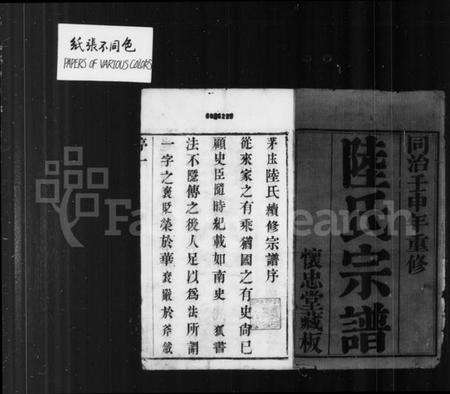 紙張不同色
PAPERS OF VARIOUS COLORS
同治壬申年重修
陸氏宗譜
懷忠堂藏板
陸氏續修宗譜序
從來家之有乘猶國之有史尚已
顧史臣隨時紀載如南史 狐書
法不隱傳之後人足以為法所謂
一字之褒榮於華袞嚴於斧
序一
FamilySearch